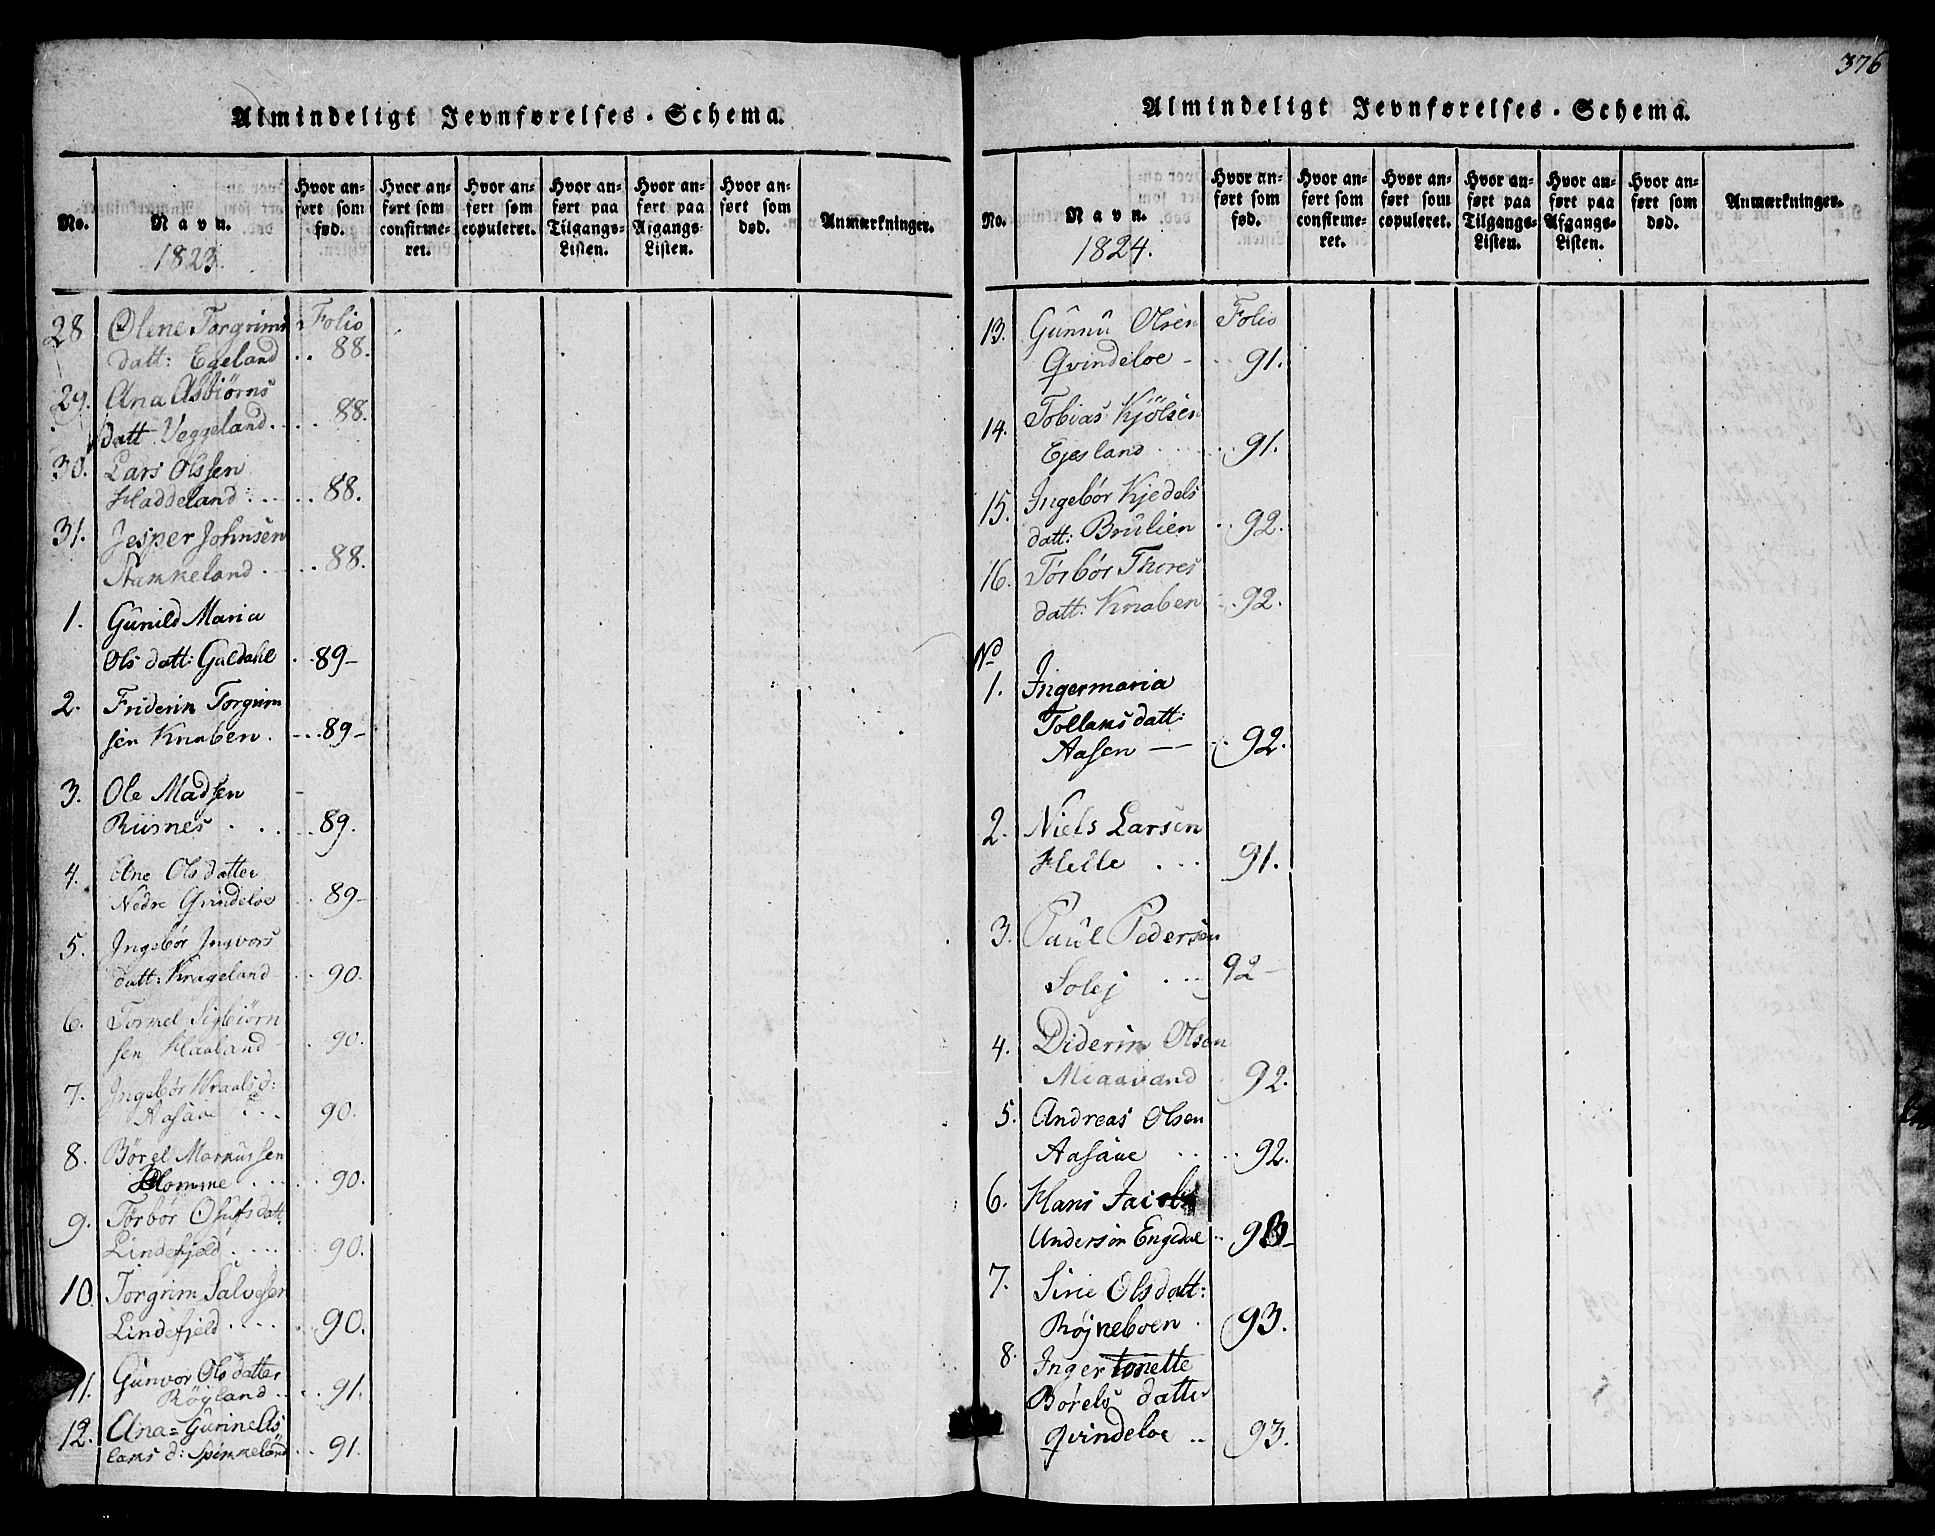 Almindeligt Jevnførelses-Schema.
No.
Navn.
1823.
Hvor anført som fød.
Hvor anført som confirmeret.
Hvor anført som copuleret.
Hvor anført paa Tilgangs-Listen.
Hvor anført paa Afgangs-Listen.
Hvor anført som død.
Anmærkninger.
28 Olene Torgrims Folio
datt: Egeland .. 88.
29. Ana Asbiørns
datt Veggeland. ... 88.
30. Lars Olssen
Haddeland. ... 88.
31. Jesper Johnsen
... 88.
1. Gunild Maria
Ols datt: Galdahl .. 89-
2. Friderik Torgrim
sen Knaben. ... 89-
3. Ole Madsen
Risnes ... 89.
4. Ane Olsdatter
Nedre Qvindeloe .. 89-
5. Ingebør Ingvors
datt: Krageland .. 90.
6. Tormel Sigbiørn
sen Haaland . 90.
7. Ingebør
Aasaue ... 90.
8. Børel Markussen
Homme .... 90.
9. Tørbør datt.
Lindefjeld .... 90.
10. Torgrim Salvesen
Lindefjeld .... 90.
11. Gunvor Olsdatter
Røyland .... 91.
12. Ana=
d: .. 91.
376
Almindeligt Jevnførelses-Schema.
No.
Navn.
1824.
Hvor anført som fød.
Hvor anført som confirmeret.
Hvor anført som copuleret.
Hvor anført paa Tilgangs-Listen.
Hvor anført paa Afgangs-Listen.
Hvor anført som død.
Anmærkninger.
13. Gunnu Olsen Folio
Qvindeloe - .. 91.
14. Tobias Kjølsen
Egesland .... 91.
15. Ingebør Kjedels
datt: Brulien .. 92.
16. Tørbør Thores
datt: Knaben .. 92.
No
1. Ingermaria
Tollaksdatt:
Aasen — .. 92.
2. Niels Larsen
Helle ... 91.
3. Paul Pedersen
Solej ... 92-
4. Diderik Olsen
Miaavand . 92.
5. Andreas Olsen
Aasaue .... 92.
6. Hans Jacob
Anderssen Engedal .. 93-
7. Sirie Olsdatt:
Røjneboen . 93.
8. Inger tonette
Børels datter
Qvindeloe .. 93.